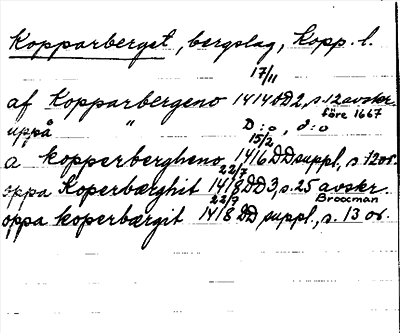 Kopparberget, bergslag, Kopp. l.
17/11
af Kopparbergeno 1414 DD2, s. 12 avskr.
före 1667
uppå " D:o, d:o
15/2
a kopperbergheno, 1416 DD suppl, s. 12 or.
22/7
oppa Koperbærghit 1418 DD3, s. 25 avskr.
22/7 Broocman
oppa koperbærgit 1418 DD suppl., s. 13 or.